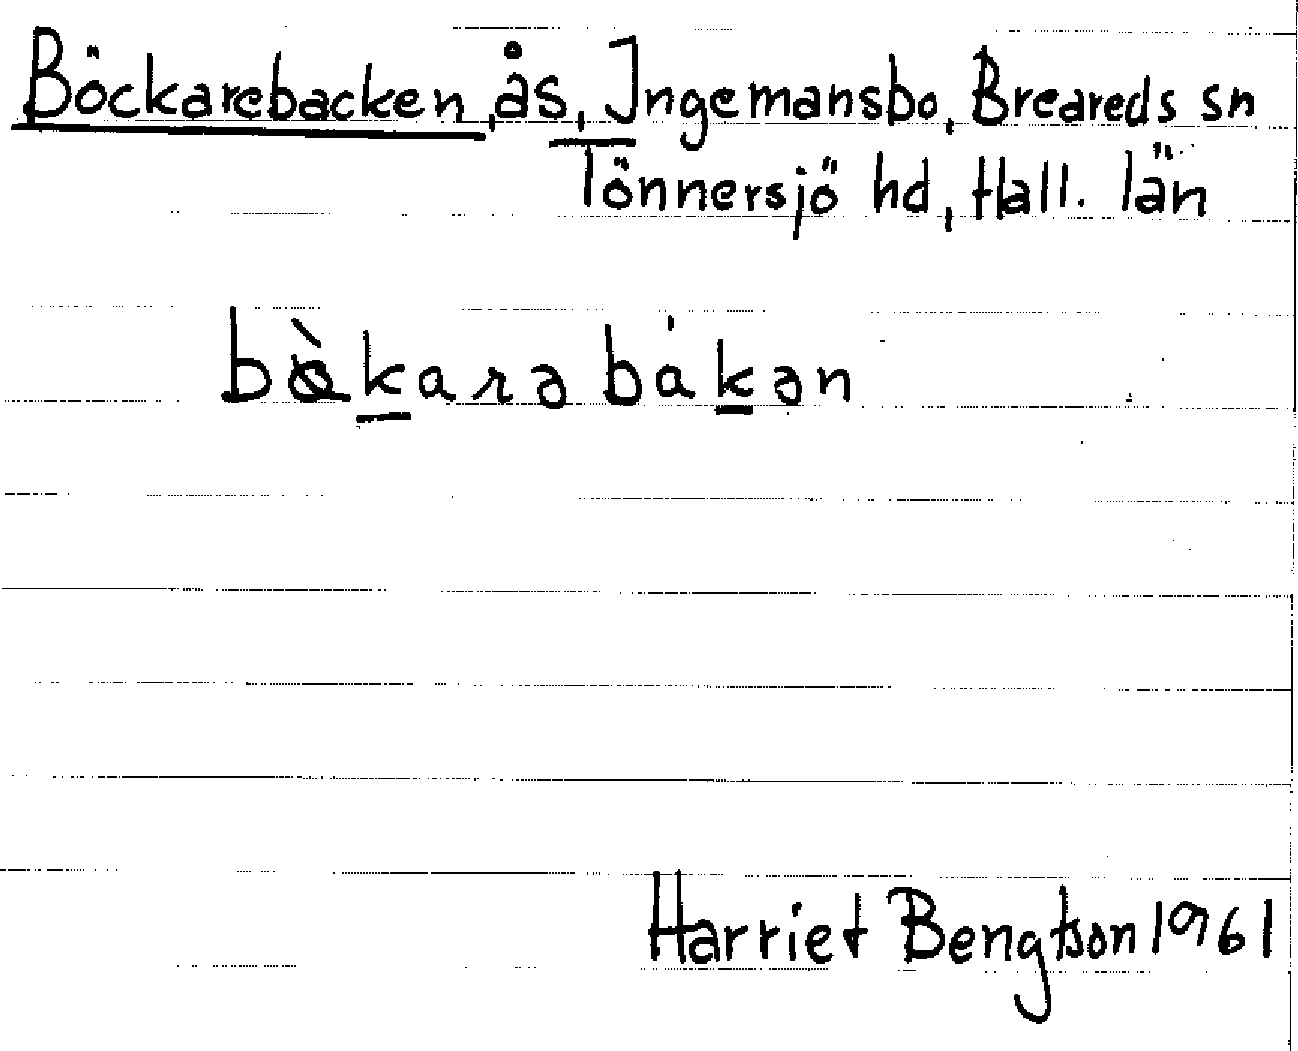 Böckarebacken, ås, Ingemansbo, Breareds sn
Tönnersjö hd, Hall. län
bø̀karə bákən
Harriet Bengtson 1961